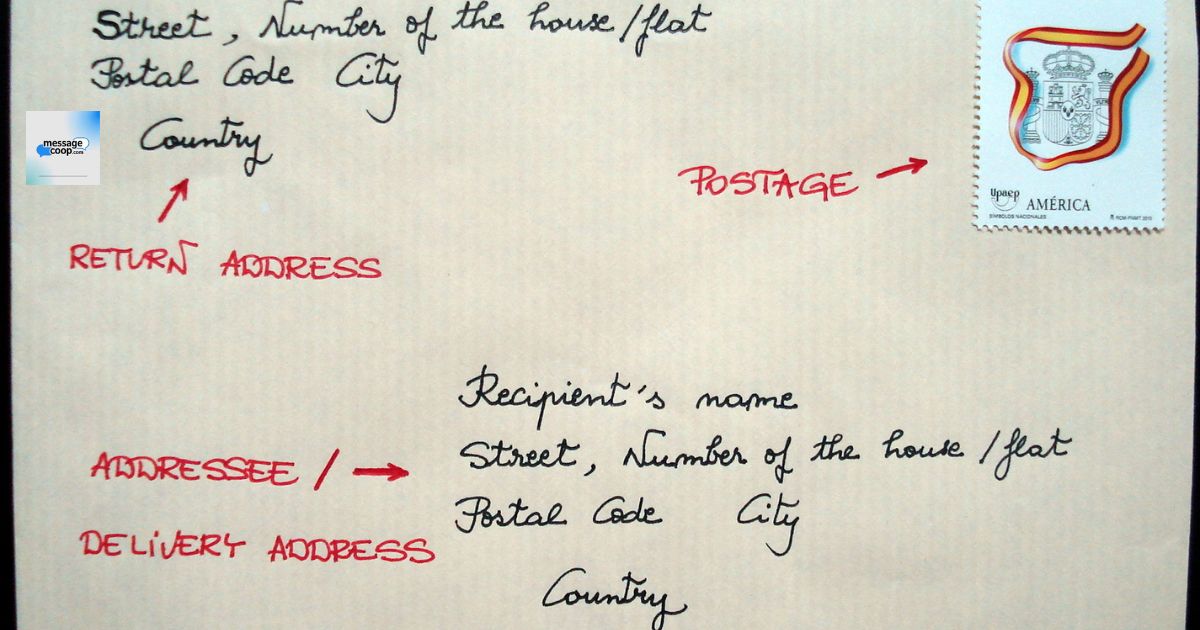 Street, Number of the house/flat
Postal Code City
message
coop.com
Country
POSTAGE
RETURN ADDRESS
Upaep
AMÉRICA
SÍMBOLOS NACIONALES
RCM-FNMT 2010
Recipient's name
Street, Number of the house/flat
ADDRESSEE /
Postal Code City
DELIVERY ADDRESS
Country